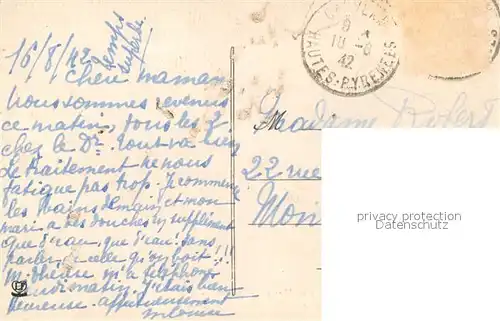 16/8/42
temps
superbe
Chère maman
Nous sommes revenus
ce matin, tous les 2
chez le Dr. Tout va bien
Le traitement ne nous
fatigue pas trop. Je commence
les bains demain et mon
mari a des douches en supplément
Que d'eau, que d'eau! sans
parler de celle qu'on boit!!!
M. Thérèse m'a téléphoné
matin. J'étais bien
heureuse. affectueusement
HAUTES-PYRÉNÉES
9
10 -8
42
Madame Robert
22 rue
privacy protection
my-postcard-auctions